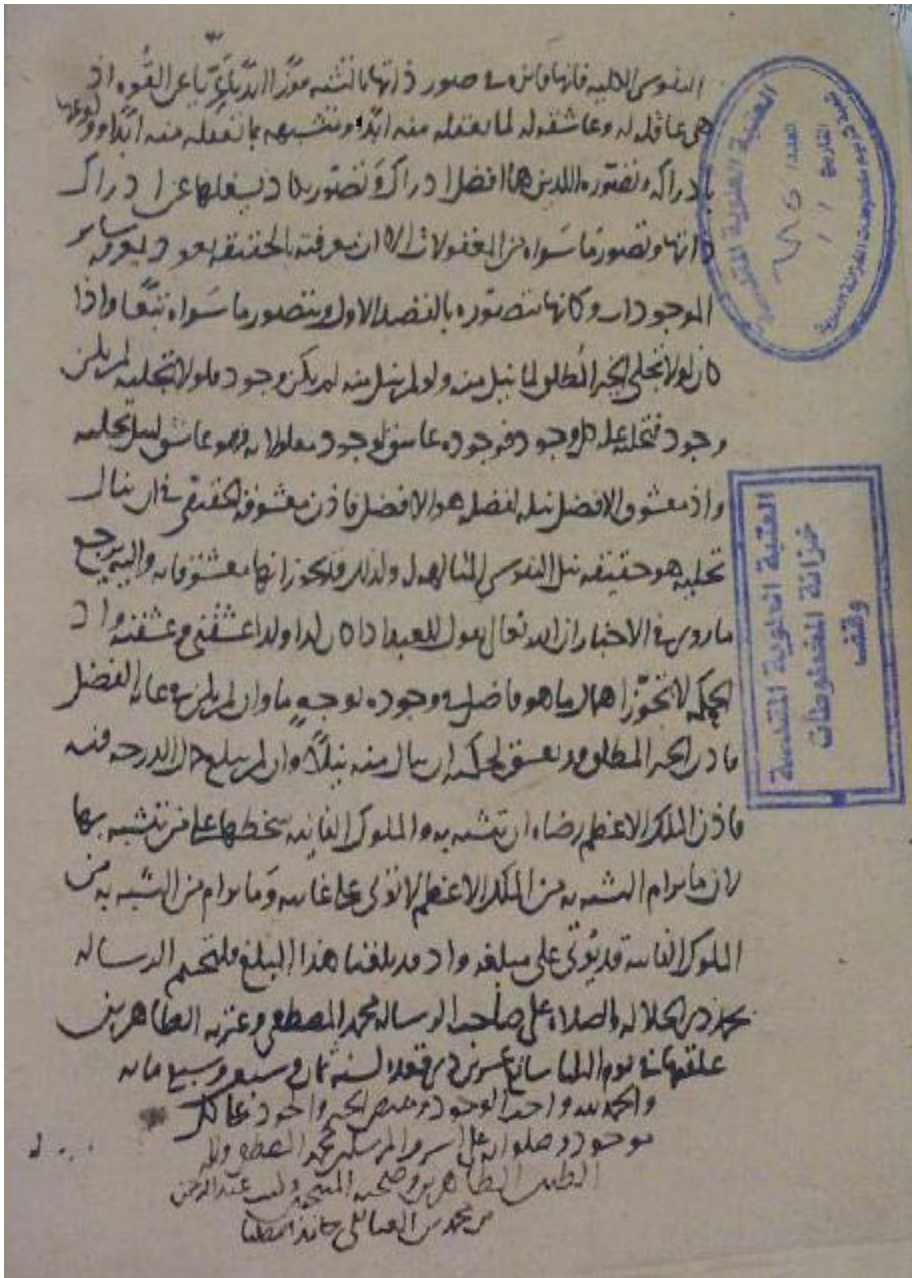 النفوس الالهيه فانها فائزه في صور ذاتها بالتشبه موزّا ابديّا عريّا عن القُوه اذ
هي عاقله له وعاشقه له لما يعقله منه ابدًا ومتشبهه بما تعقله منه ابدًا وولوعها
بادراكه وتصوره اللذين هما افضل ادراك وتصور يكاد يشغلها عن ادراك
ذاتها وتصور ما سواه من المعقولات الا ان معرفته بالحقيقه يعود بمعرفه ساير
الموجودات وكانها تتصوره بالقصد الاول وتتصور ما سواه تبعًا واذا
كان لولا تجلي الخير المطلق لما نيل منه ولو لم ينل منه لم يكن وجود فلولا تجليه لم يكن
وجود فتجليه علة كل وجود فهو بوجوده عاشق لوجود معلولاته فهو عاشق لنيل تجليه
واذ معشوق الافضل نيله لفضله هو الافضل فاذن معشوقه الحقيقي في ان ينال
تجليه هو حقيقه نيل النفوس المتالهه له ولذلك قد يجوز انها معشوقاته واليه يرجع
ما روى في الاخبار ان الله تعالى يقول للعبد اذا كان كذا وكذا عشقني وعشقته واذ
الحكمه لا تجوّز اهمال ما هو فاضل في وجوده بوجهٍ ما وان لم يكن في غايه الفضل
فاذن الخير المطلق قد يعشق بحكمته ان ينال منه نيلًا وان لم يبلغ كمال الدرجه فيه
فاذن الملك الاعظم رضاه ان تشبه به والملوك الفانيه سخطها على من تشبه بها
لان ما يرام التشبه به من الملك الاعظم لا يؤتى على غايته وما يرام من التشبه به من
الملوك الفانيه قد يُؤتى على مبلغه واذ قد بلغنا هذا المبلغ فلنختم الرساله
بحمد ذي الجلاله والصلاه على صاحب الرساله محمد المصطفى وعترته الطاهرين
علقها في يوم الثلثا سابع عشرين ذي قعده لسنه ثمان وسبعين وسبع مائه
والحمد لله واجد الوجود ومفيض الخير والجود على كل
موجود وصلواته على اشرف المرسلين محمد المصطفى واله
الطيبين الطاهرين وصحبه المنتجبين وكتب عبد الرحمن
بن محمد بن العتائقي حامدا مصليا
العتبة العلوية المقدسة
العدد /
التاريخ / /
العتبة العلوية المقدسة
خزانة المخطوطات
وقف